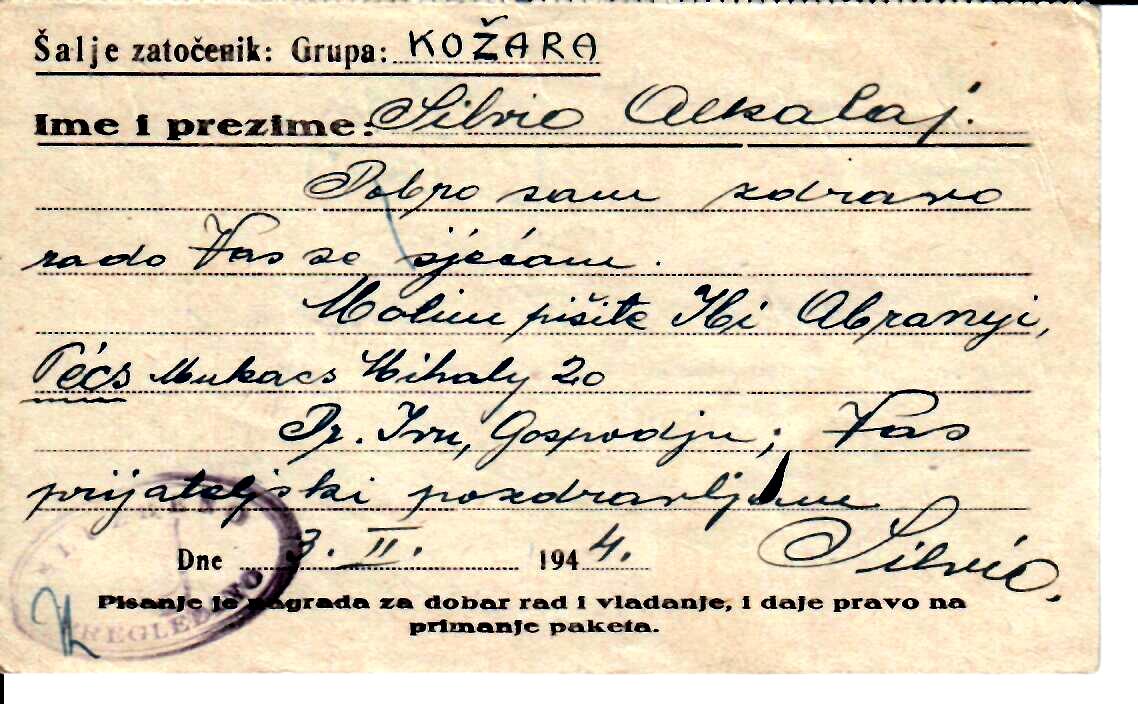 Šalje zatočenik: Grupa: KOŽARA
Ime i prezime: Silvio Alkalaj.
Dobro sam zdravo
rado Vas se sjećam.
Molim pišite Ibi Abranyi,
Pécs Mukacs Mihaly 20
Dr. Ivu, Gospodju, Vas
prijateljski pozdravljam
Silvio,
Dne 3. II. 1944.
PREGLEDANO
Pisanje je nagrada za dobar rad i vladanje, i daje pravo na
primanje paketa.